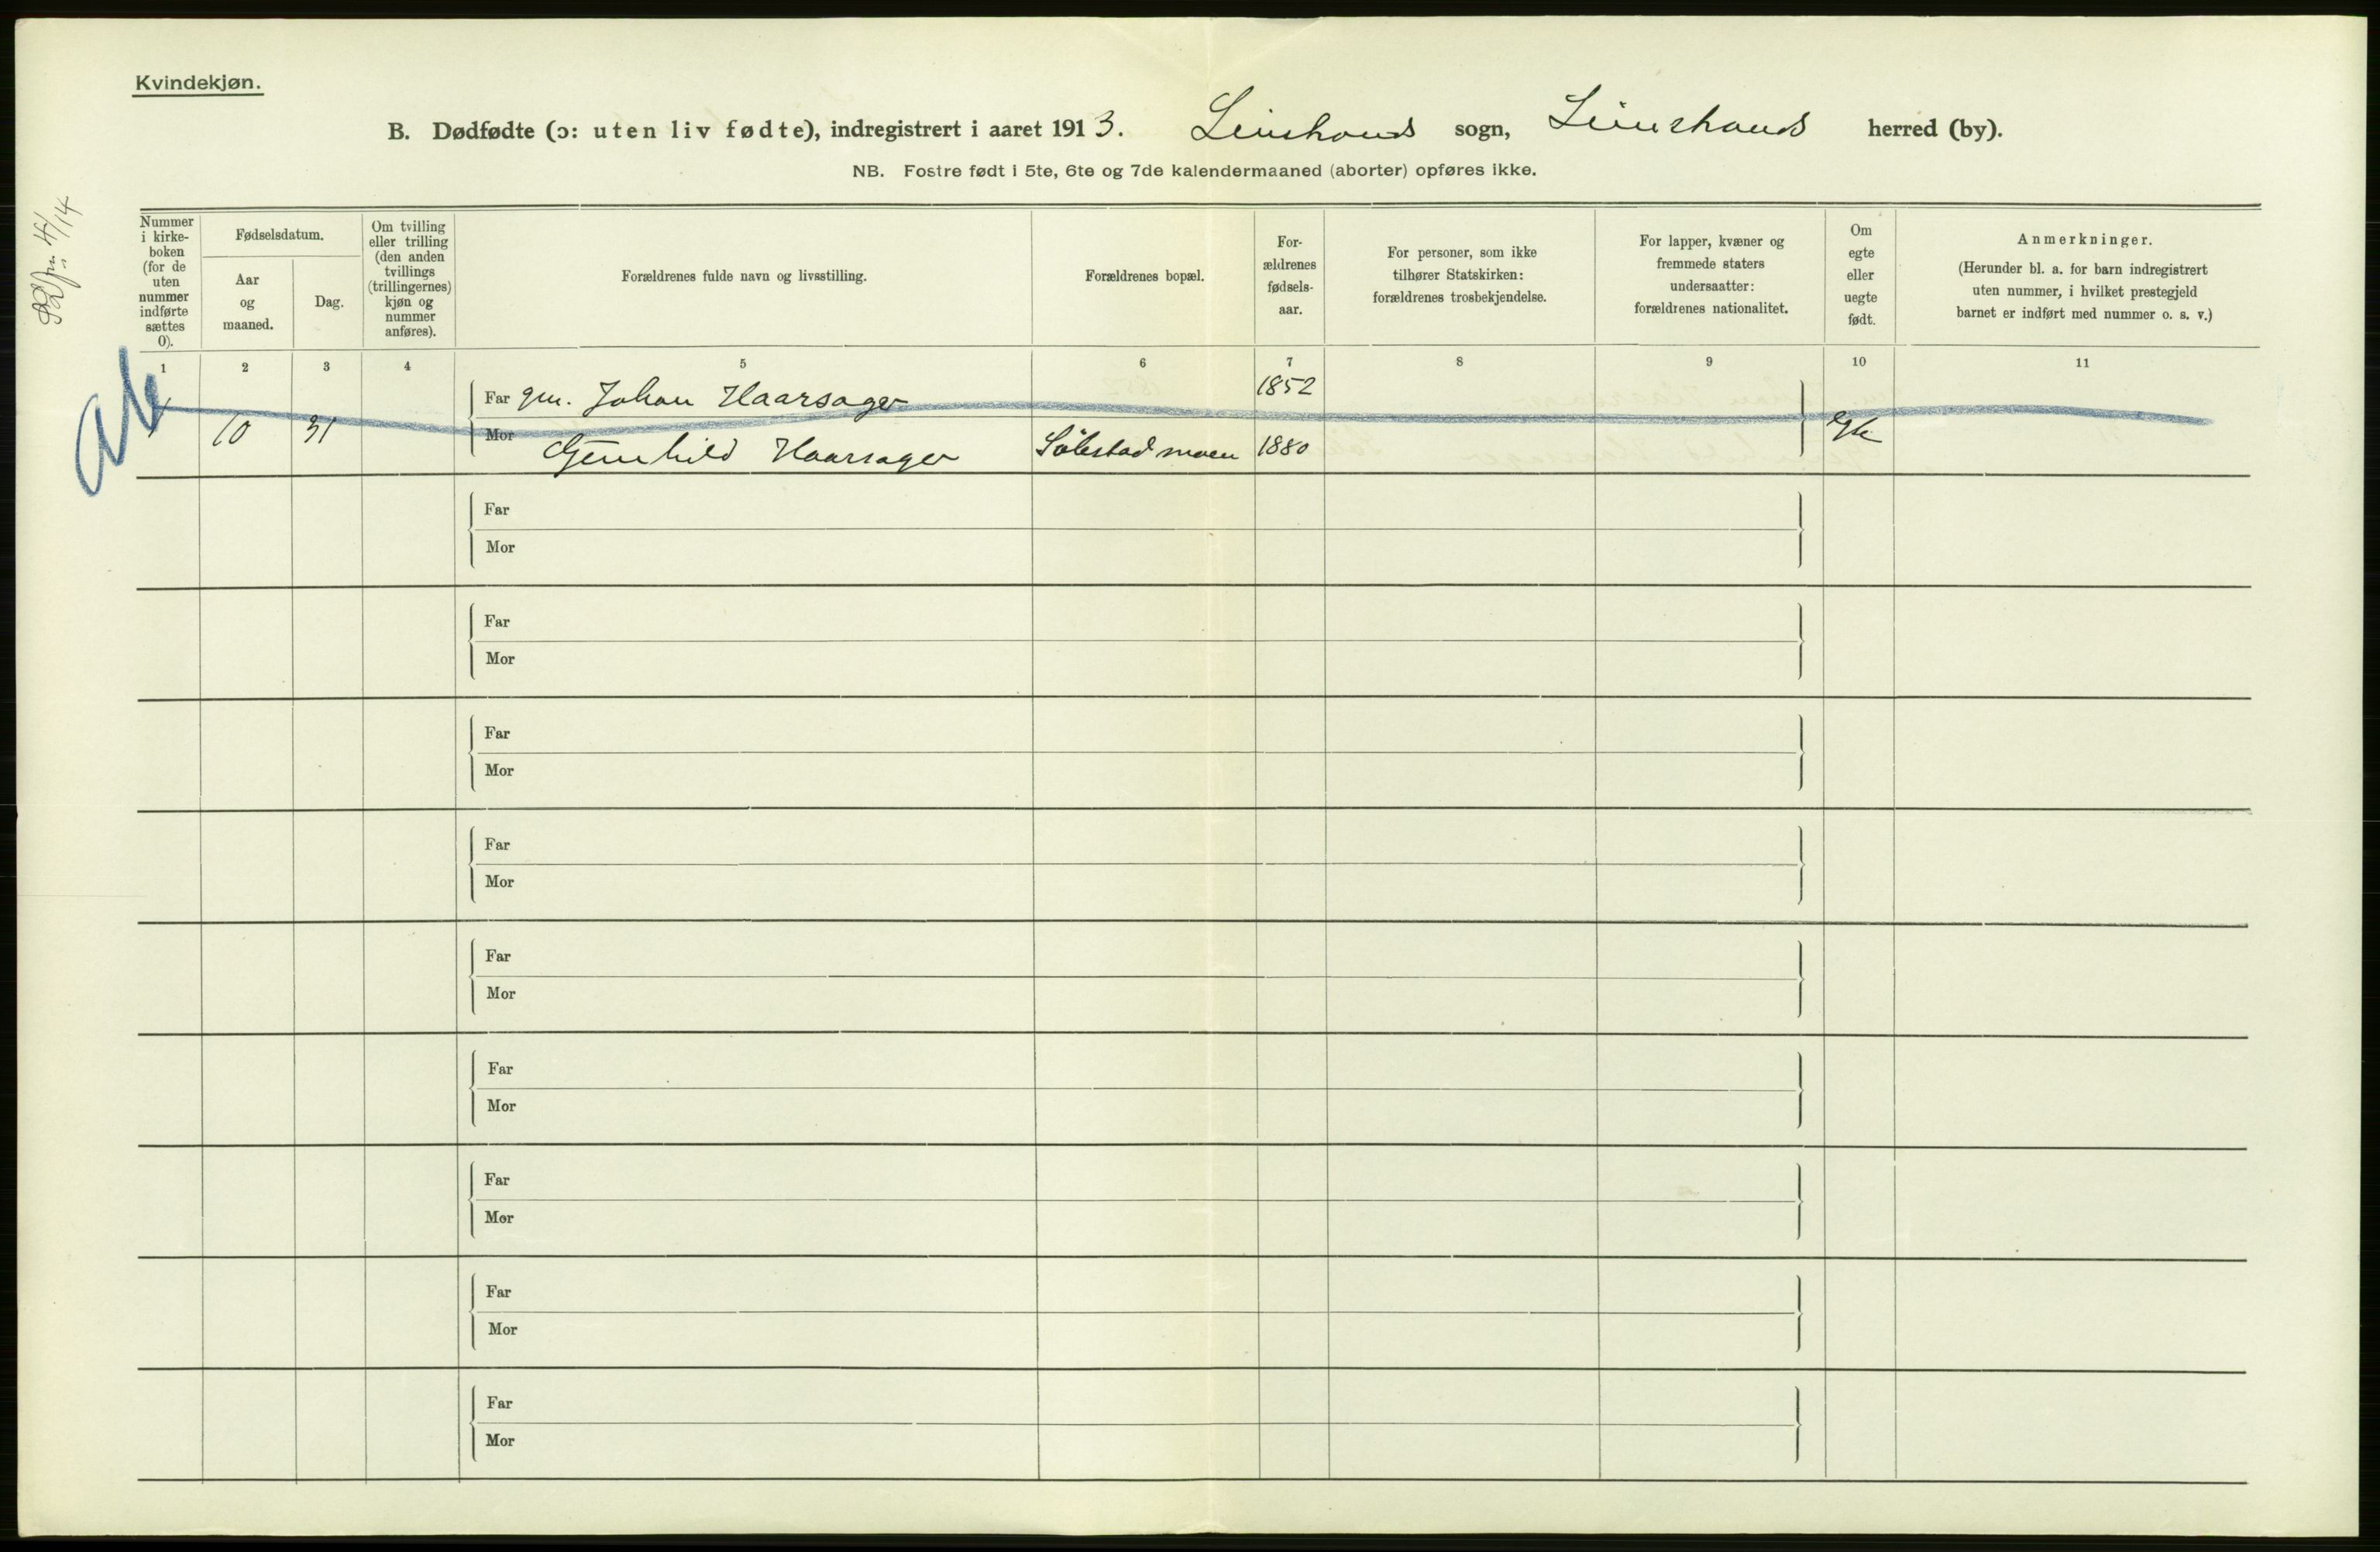 Kvindekjøn.
B. Dødfødte (ɔ: uten liv fødte), indregistrert i aaret 1913. sogn, herred (by).
NB. Fostre født i 5te, 6te og 7de kalendermaaned (aborter) opføres ikke.
Nummer
i kirke-
boken
(for de
uten
nummer
indførte
sættes
0).
Fødselsdatum.
Aar
og
maaned.
Dag.
Om tvilling
eller trilling
(den anden
tvillings
(trillingernes)
kjøn og
nummer
anføres).
Forældrenes fulde navn og livsstilling.
Forældrenes bopæl.
For-
ældrenes
fødsels-
aar.
For personer, som ikke
tilhører Statskirken:
forældrenes trosbekjendelse.
For lapper, kvæner og
fremmede staters
undersaatter:
forældrenes nationalitet.
Om
egte
eller
uegte
født.
Anmerkninger.
(Herunder bl. a. for barn indregistrert
uten nummer, i hvilket prestegjeld
barnet er indført med nummer o. s. v.)
1 2 3 4 5 6 7 8 9 10 11
Far gm. Johan Haarsager 1852
10 31 Mor Haarsager 1880
Far
Mor
Far
Mor
Far
Mor
Far
Mor
Far
Mor
Far
Mor
Far
Mor
Far
Mor
Far
Mor